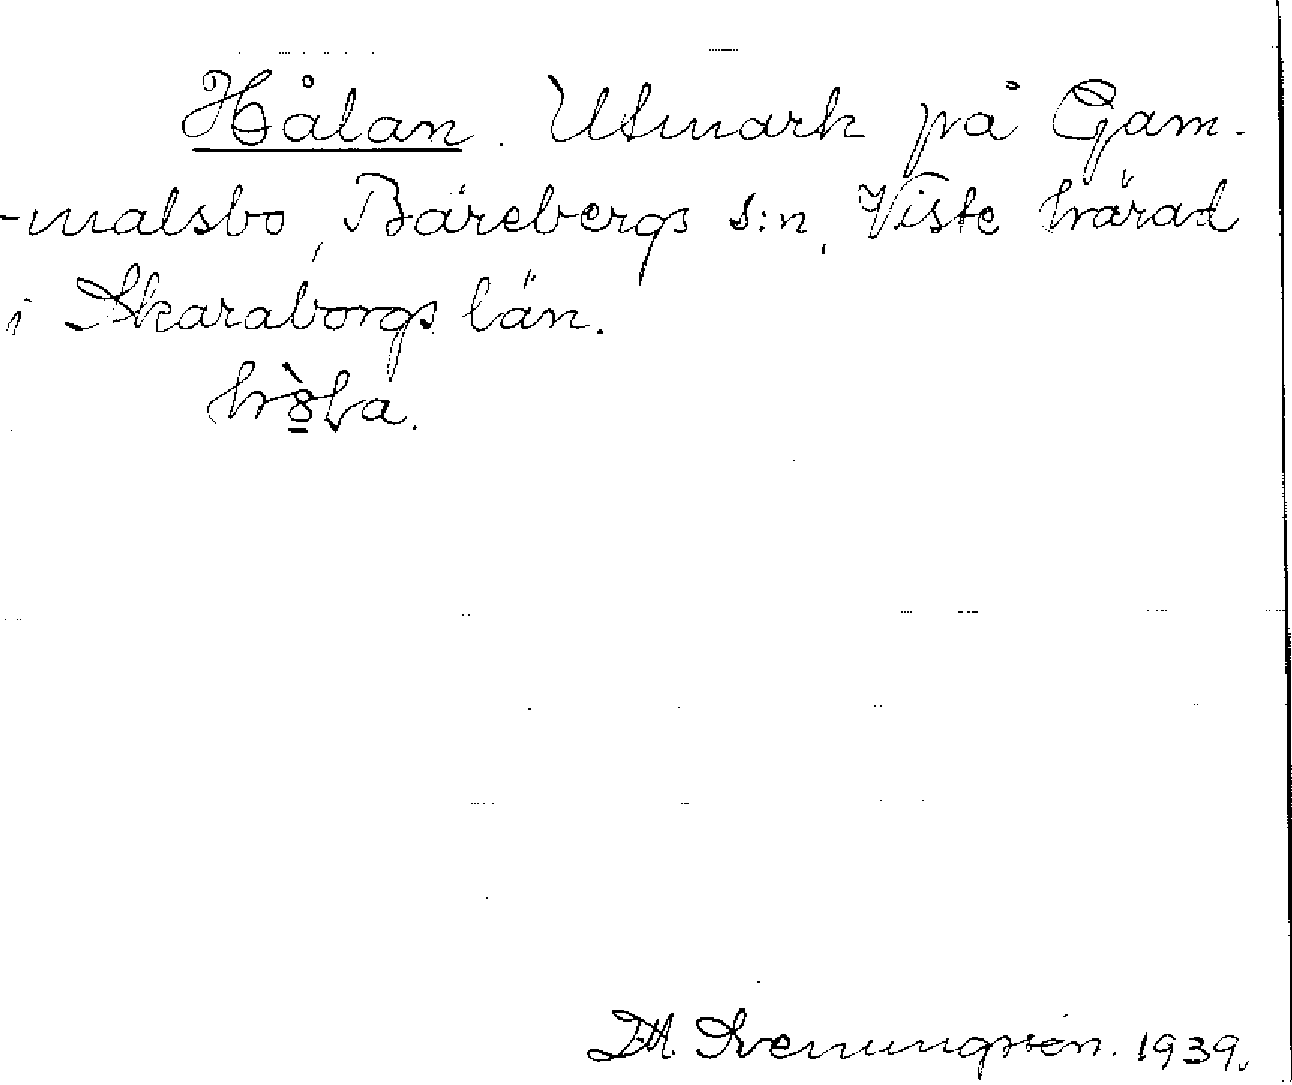 Hålan. Utmark på Gam-
-malsbo, Bärebergs s:n, Viste härad
i Skaraborgs län.
Svenungsson. 1939.